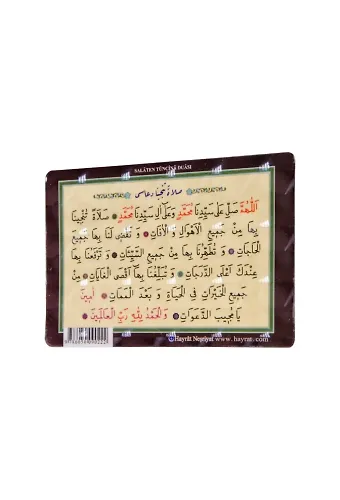 SALÂTEN TÜNCÎNÂ DUÂSI
صلاة تنجينا دعاسى
اَللّٰهُمَّ صَلِّ عَلٰى سَيِّدِنَا مُحَمَّدٍ وَعَلٰى اٰلِ سَيِّدِنَا مُحَمَّدٍ صَلَاةً تُنْجِينَا
بِهَا مِنْ جَمِيعِ الْاَهْوَالِ وَ الْاٰفَاتِ وَ تَقْضِى لَنَا بِهَا جَمِيعَ
الْحَاجَاتِ وَ تُطَهِّرُنَا بِهَا مِنْ جَمِيعِ السَّيِّئَاتِ وَ تَرْفَعُنَا بِهَا
عِنْدَكَ اَعْلَى الدَّرَجَاتِ وَ تُبَلِّغُنَا بِهَا اَقْصَى الْغَايَاتِ مِنْ
جَمِيعِ الْخَيْرَاتِ فِى الْحَيَاةِ وَ بَعْدَ الْمَمَاتِ اٰمِينَ
يَا مُجِيبَ الدَّعَوَاتِ وَ الْحَمْدُ لِلّٰهِ رَبِّ الْعَالَمِينَ
Hayrât Neşriyat www.hayrat.com